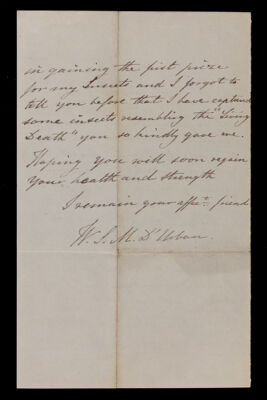 in gaining the first prize
for my Insects and I forgot to
tell you before that I have captured
some insects resembling the "Living
Death" you so kindly gave me.
Hoping you will soon regain
your health and strength
I remain your affec.te friend
W. S. M. D'Urban.